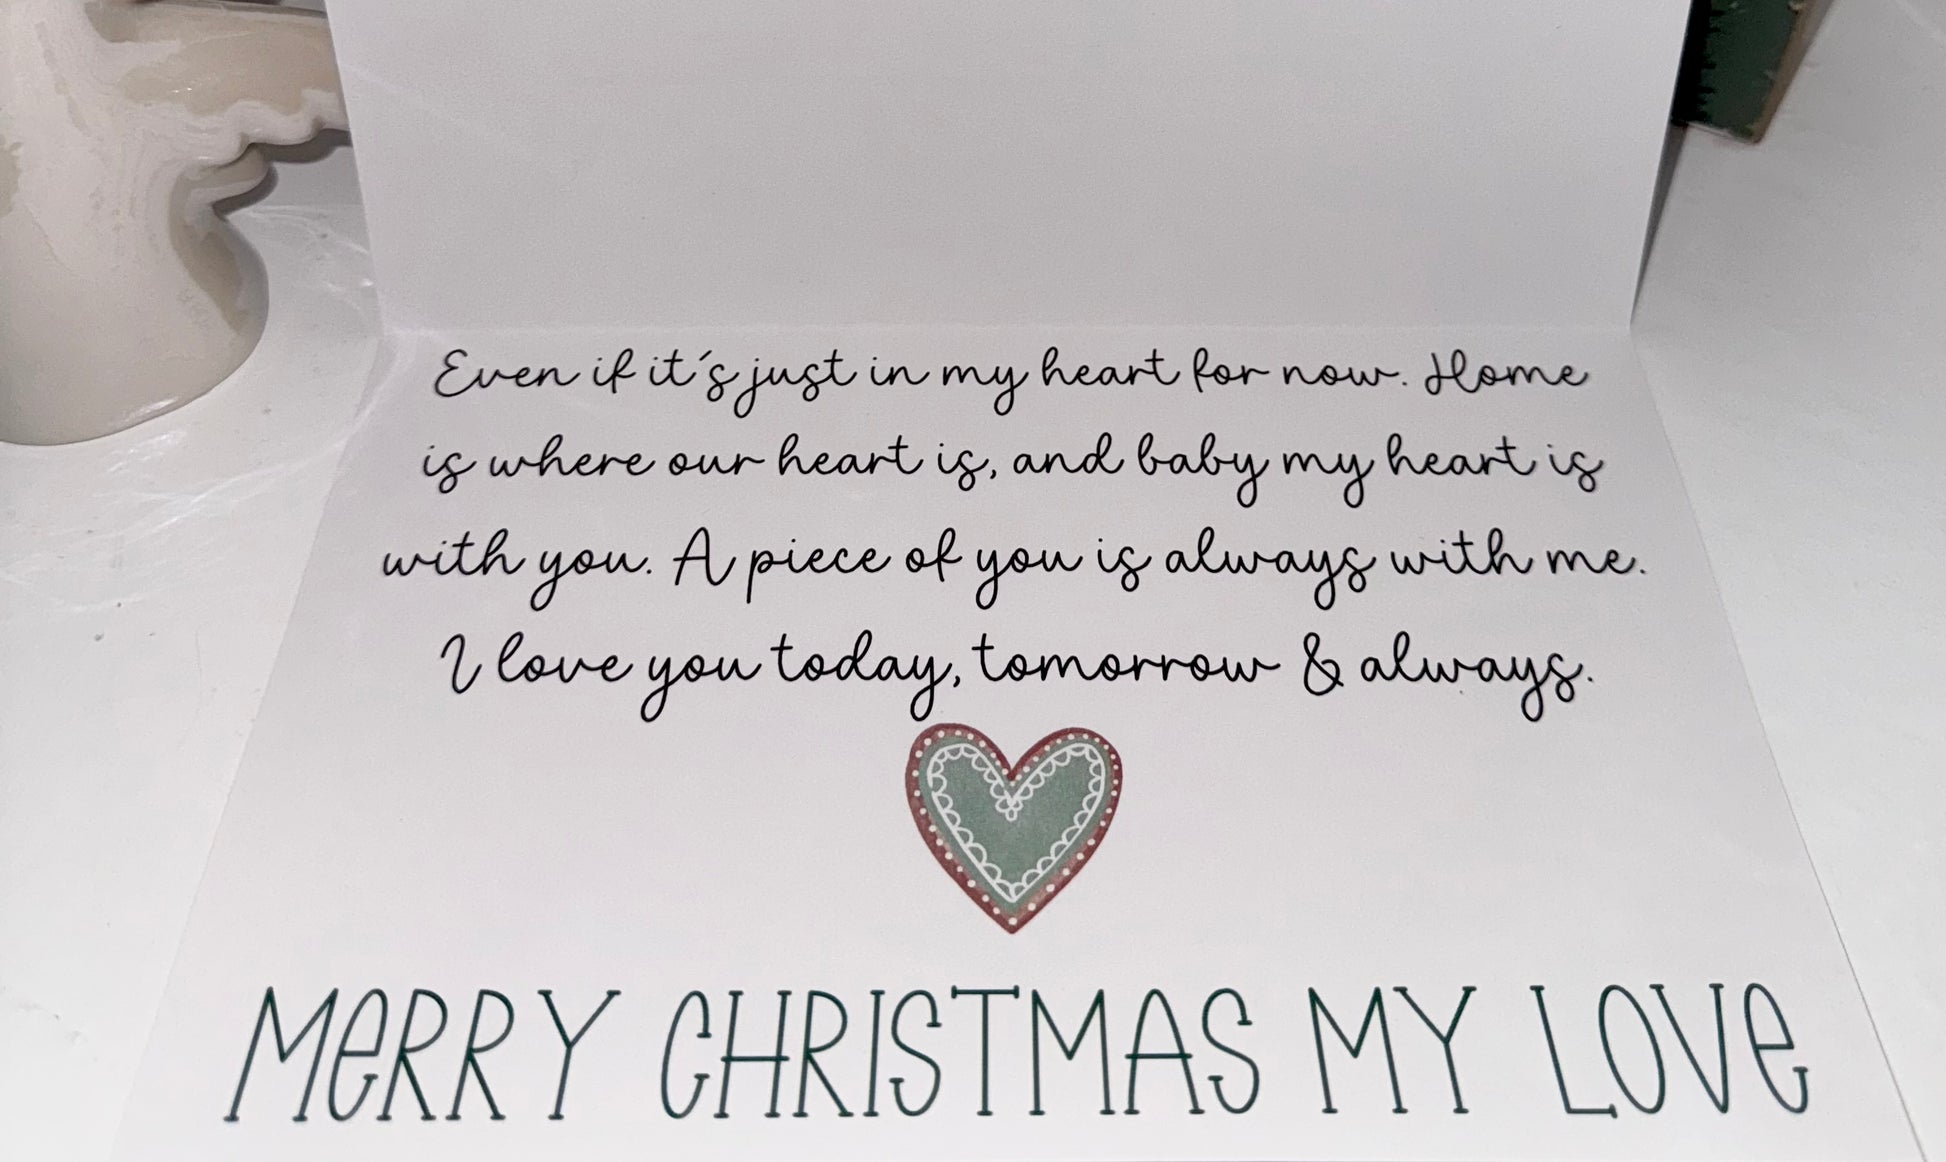 Even if it´s just in my heart for now. Home
is where our heart is, and baby my heart is
with you. A piece of you is always with me.
I love you today, tomorrow & always.
MeRRY CHRISTMAS MY LOVe